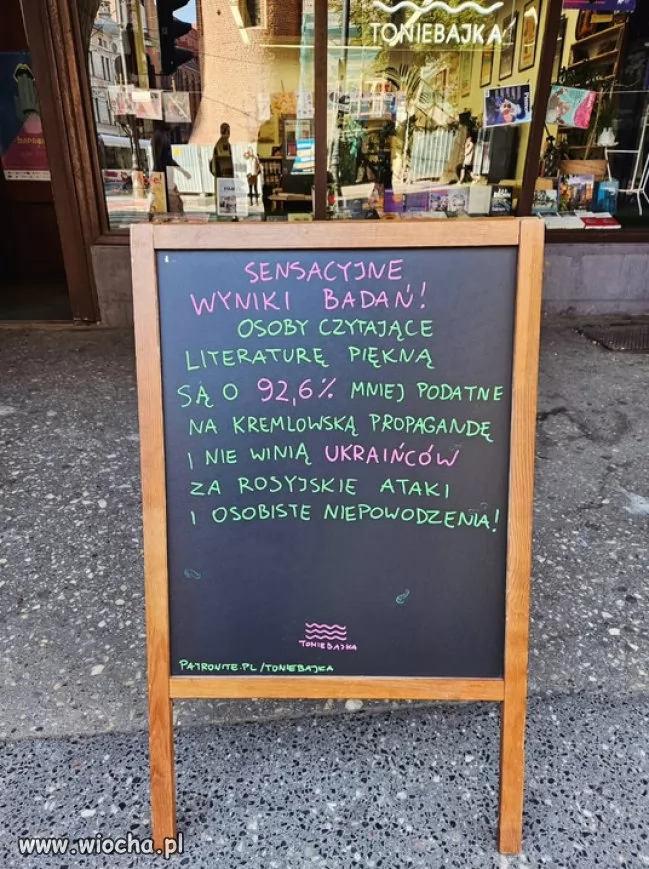 TONIEBAJKA
SENSACYJNE
WYNIKI BADAŃ!
OSOBY CZYTAJĄCE
LITERATURĘ PIĘKNĄ
SĄ O 92,6% MNIEJ PODATNE
NA KREMLOWSKĄ PROPAGANDĘ
I NIE WINIĄ UKRAIŃCÓW
ZA ROSYJSKIE ATAKI
I OSOBISTE NIEPOWODZENIA!
TONIEBAJKA
PATRONITE.PL/TONIEBAJKA
www.wiocha.pl